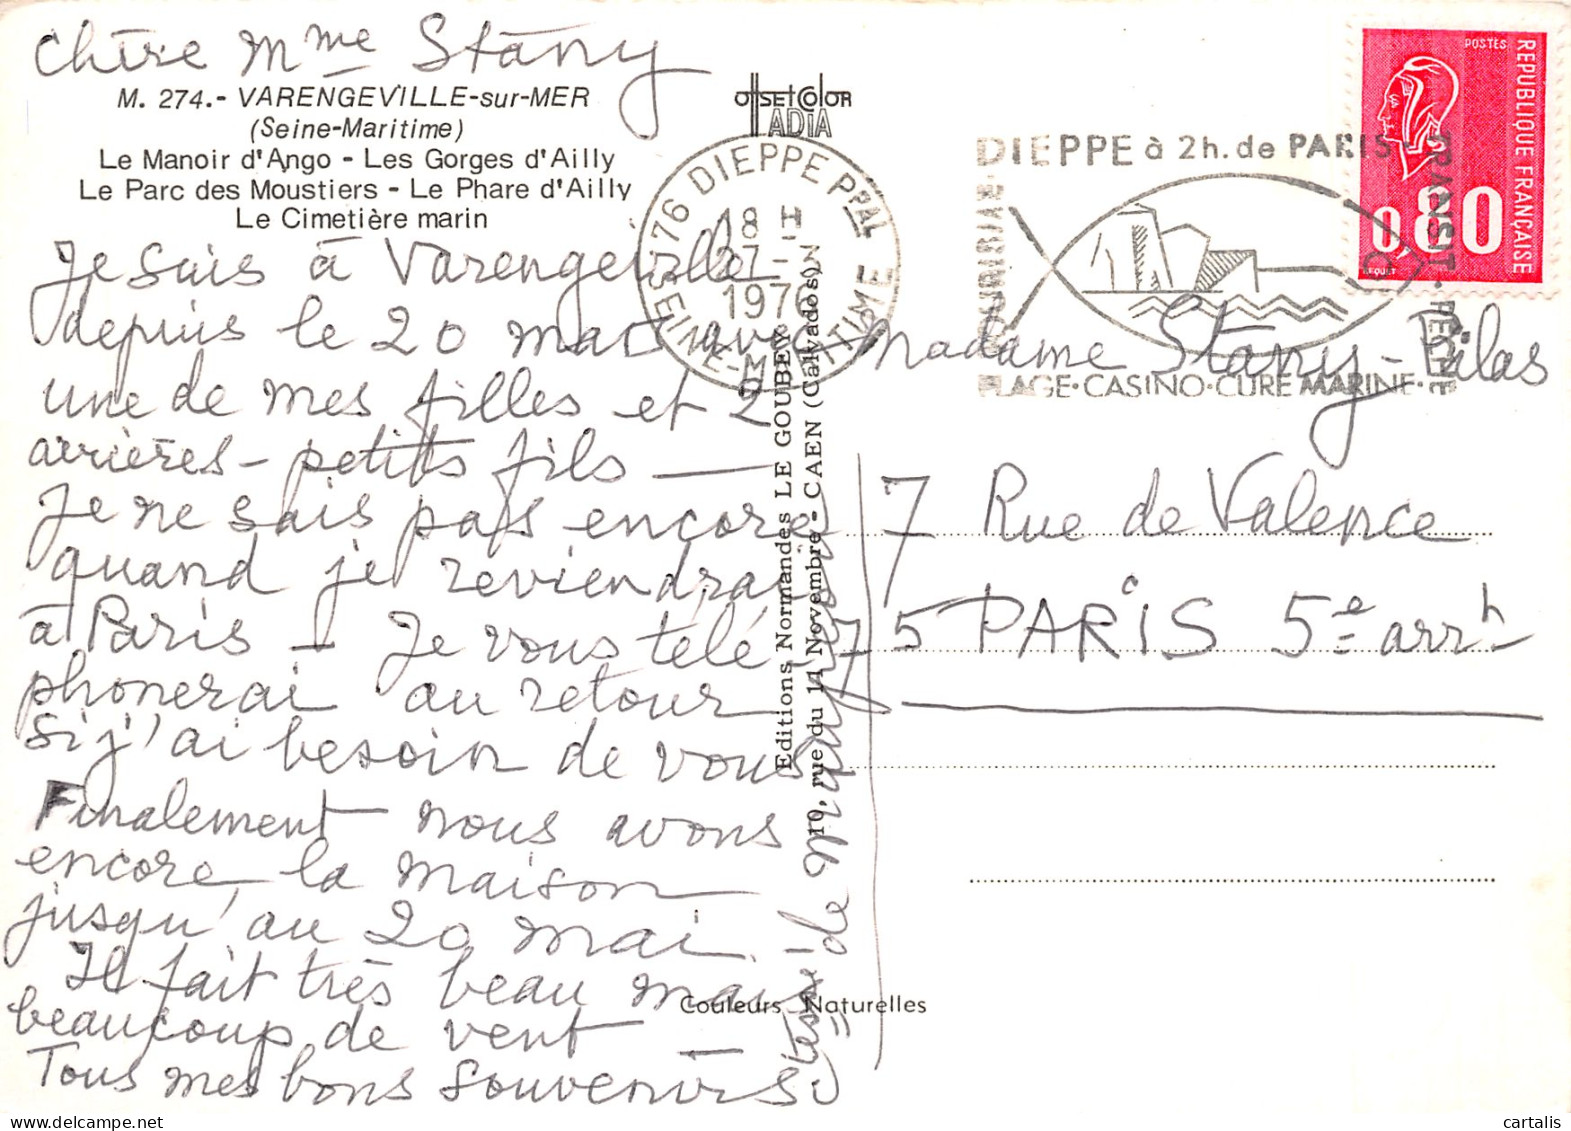 Chère Mme Stany
M. 274.- VARENGEVILLE-sur-MER
(Seine-Maritime)
Le Manoir d'Ango - Les Gorges d'Ailly
Le Parc des Moustiers - Le Phare d'Ailly
Le Cimetière marin
Je suis à Varengeville
depuis le 20 mars avec
une de mes filles et 2
arrières-petits fils —
Je ne sais pas encore
quand je reviendrai
à Paris - Je vous télé
phonerai au retour
si j'ai besoin de vous
Finalement nous avons
encore la maison
jusqu'au 20 mai.
Il fait très beau mais
beaucoup de vent —
Tous mes bons souvenirs
OFFSET COLOR
IADIA
76 DIEPPE PPAL
18 H
27-3
1976
SEINE-MARITIME
DIEPPE à 2h. de PARIS -
TRANSIT - PÊCHE
PLAGE · CASINO · CURE MARINE ·
POSTES
REPUBLIQUE FRANÇAISE
0,80
BEQUET
Editions Normandes LE GOUBEY
10, rue du 11 Novembre - CAEN (Calvados)
Couleurs Naturelles
Madame Stany-
7 Rue de Valence
75 PARIS 5e arrt
de
cartalis